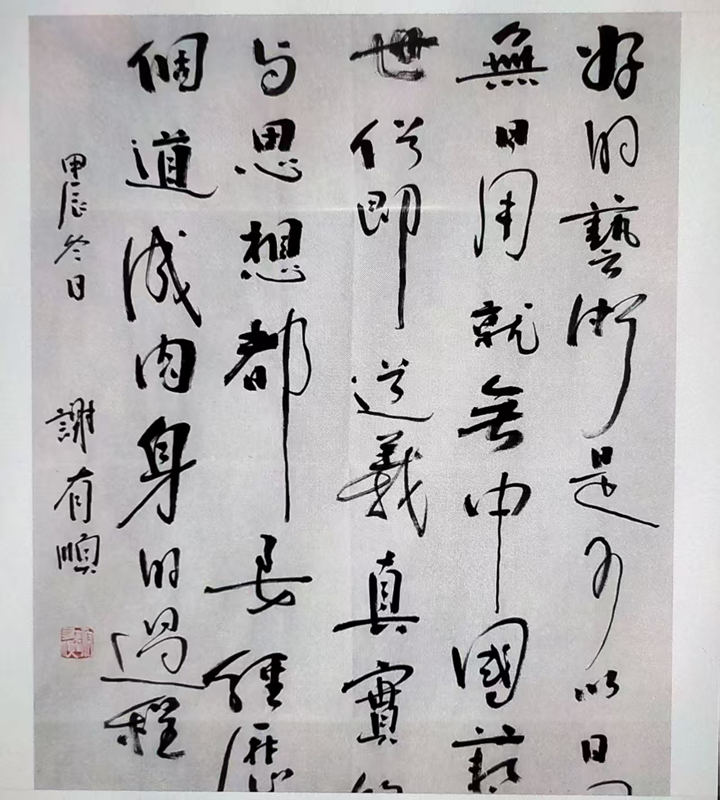 好的藝術是可以日
無日用就無中國藝
世俗即道義真實
与思想都要經歷
個道成肉身的過程
甲辰冬日 謝有順